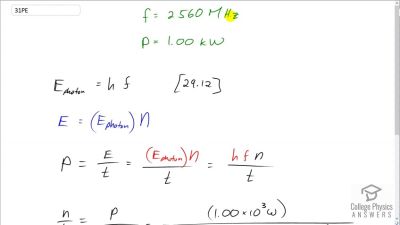 31PE
f = 2560 MHz
P = 1.00 kW
E photon = h f [29.12]
E = (E photon) n
P = E/t = (E photon) n / t = h f n / t
n P (1.00 × 10³ W)
College Physics
ANSWERS